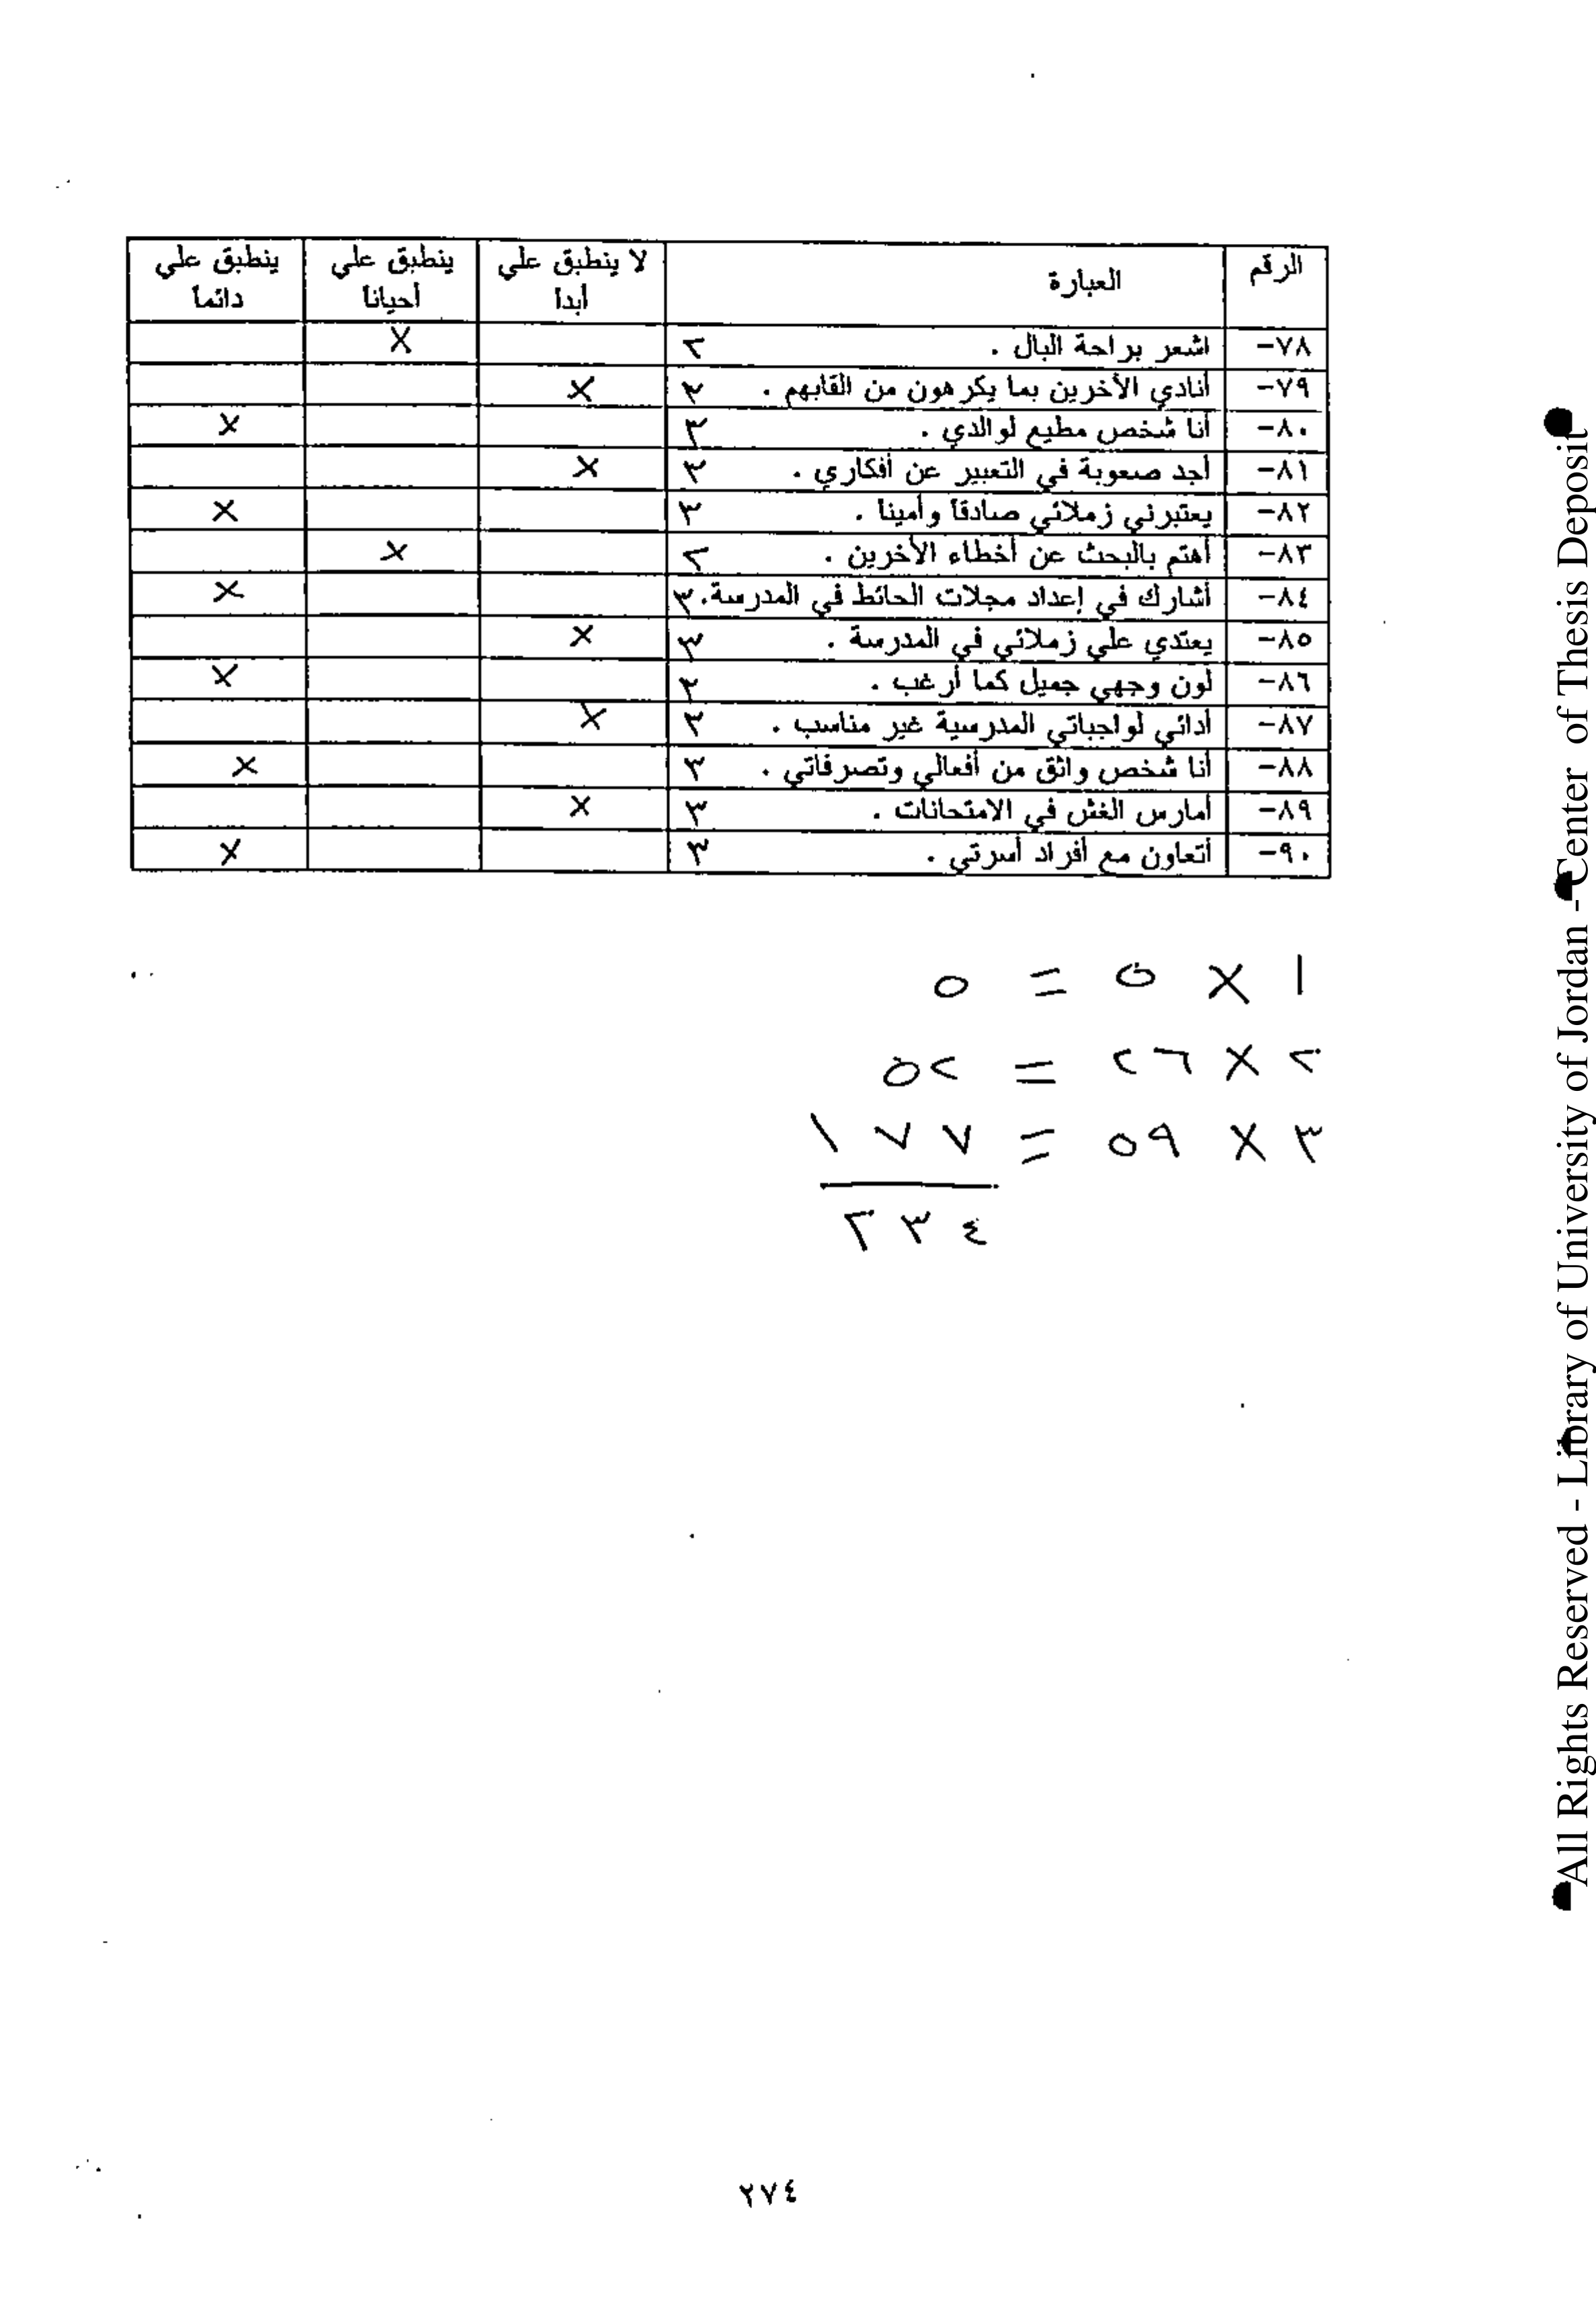 الرقم العبارة لا ينطبق علي أبدا ينطبق علي أحيانا ينطبق علي دائما
٧٨- اشعر براحة البال . ٢ X
٧٩- أنادي الأخرين بما يكرهون من القابهم . ٣ X
٨٠- أنا شخص مطيع لوالدي . ٣ X
٨١- أجد صعوبة في التعبير عن أفكاري . ٣ X
٨٢- يعتبرني زملائي صادقا وأمينا . ٣ X
٨٣- أهتم بالبحث عن أخطاء الأخرين . ٢ X
٨٤- أشارك في إعداد مجلات الحائط في المدرسة. ٣ X
٨٥- يعتدي علي زملائي في المدرسة . ٣ X
٨٦- لون وجهي جميل كما أرغب . ٣ X
٨٧- أدائي لواجباتي المدرسية غير مناسب . ٣ X
٨٨- أنا شخص واثق من أفعالي وتصرفاتي . ٣ X
٨٩- أمارس الغش في الامتحانات . ٣ X
٩٠- أتعاون مع أفراد أسرتي . ٣ X
١ X ٥ = ٥
٢ X ٢٦ = ٥٢
٣ X ٥٩ = ١٧٧
٢٣٤
٢٧٤
All Rights Reserved - Library of University of Jordan - Center of Thesis Deposit